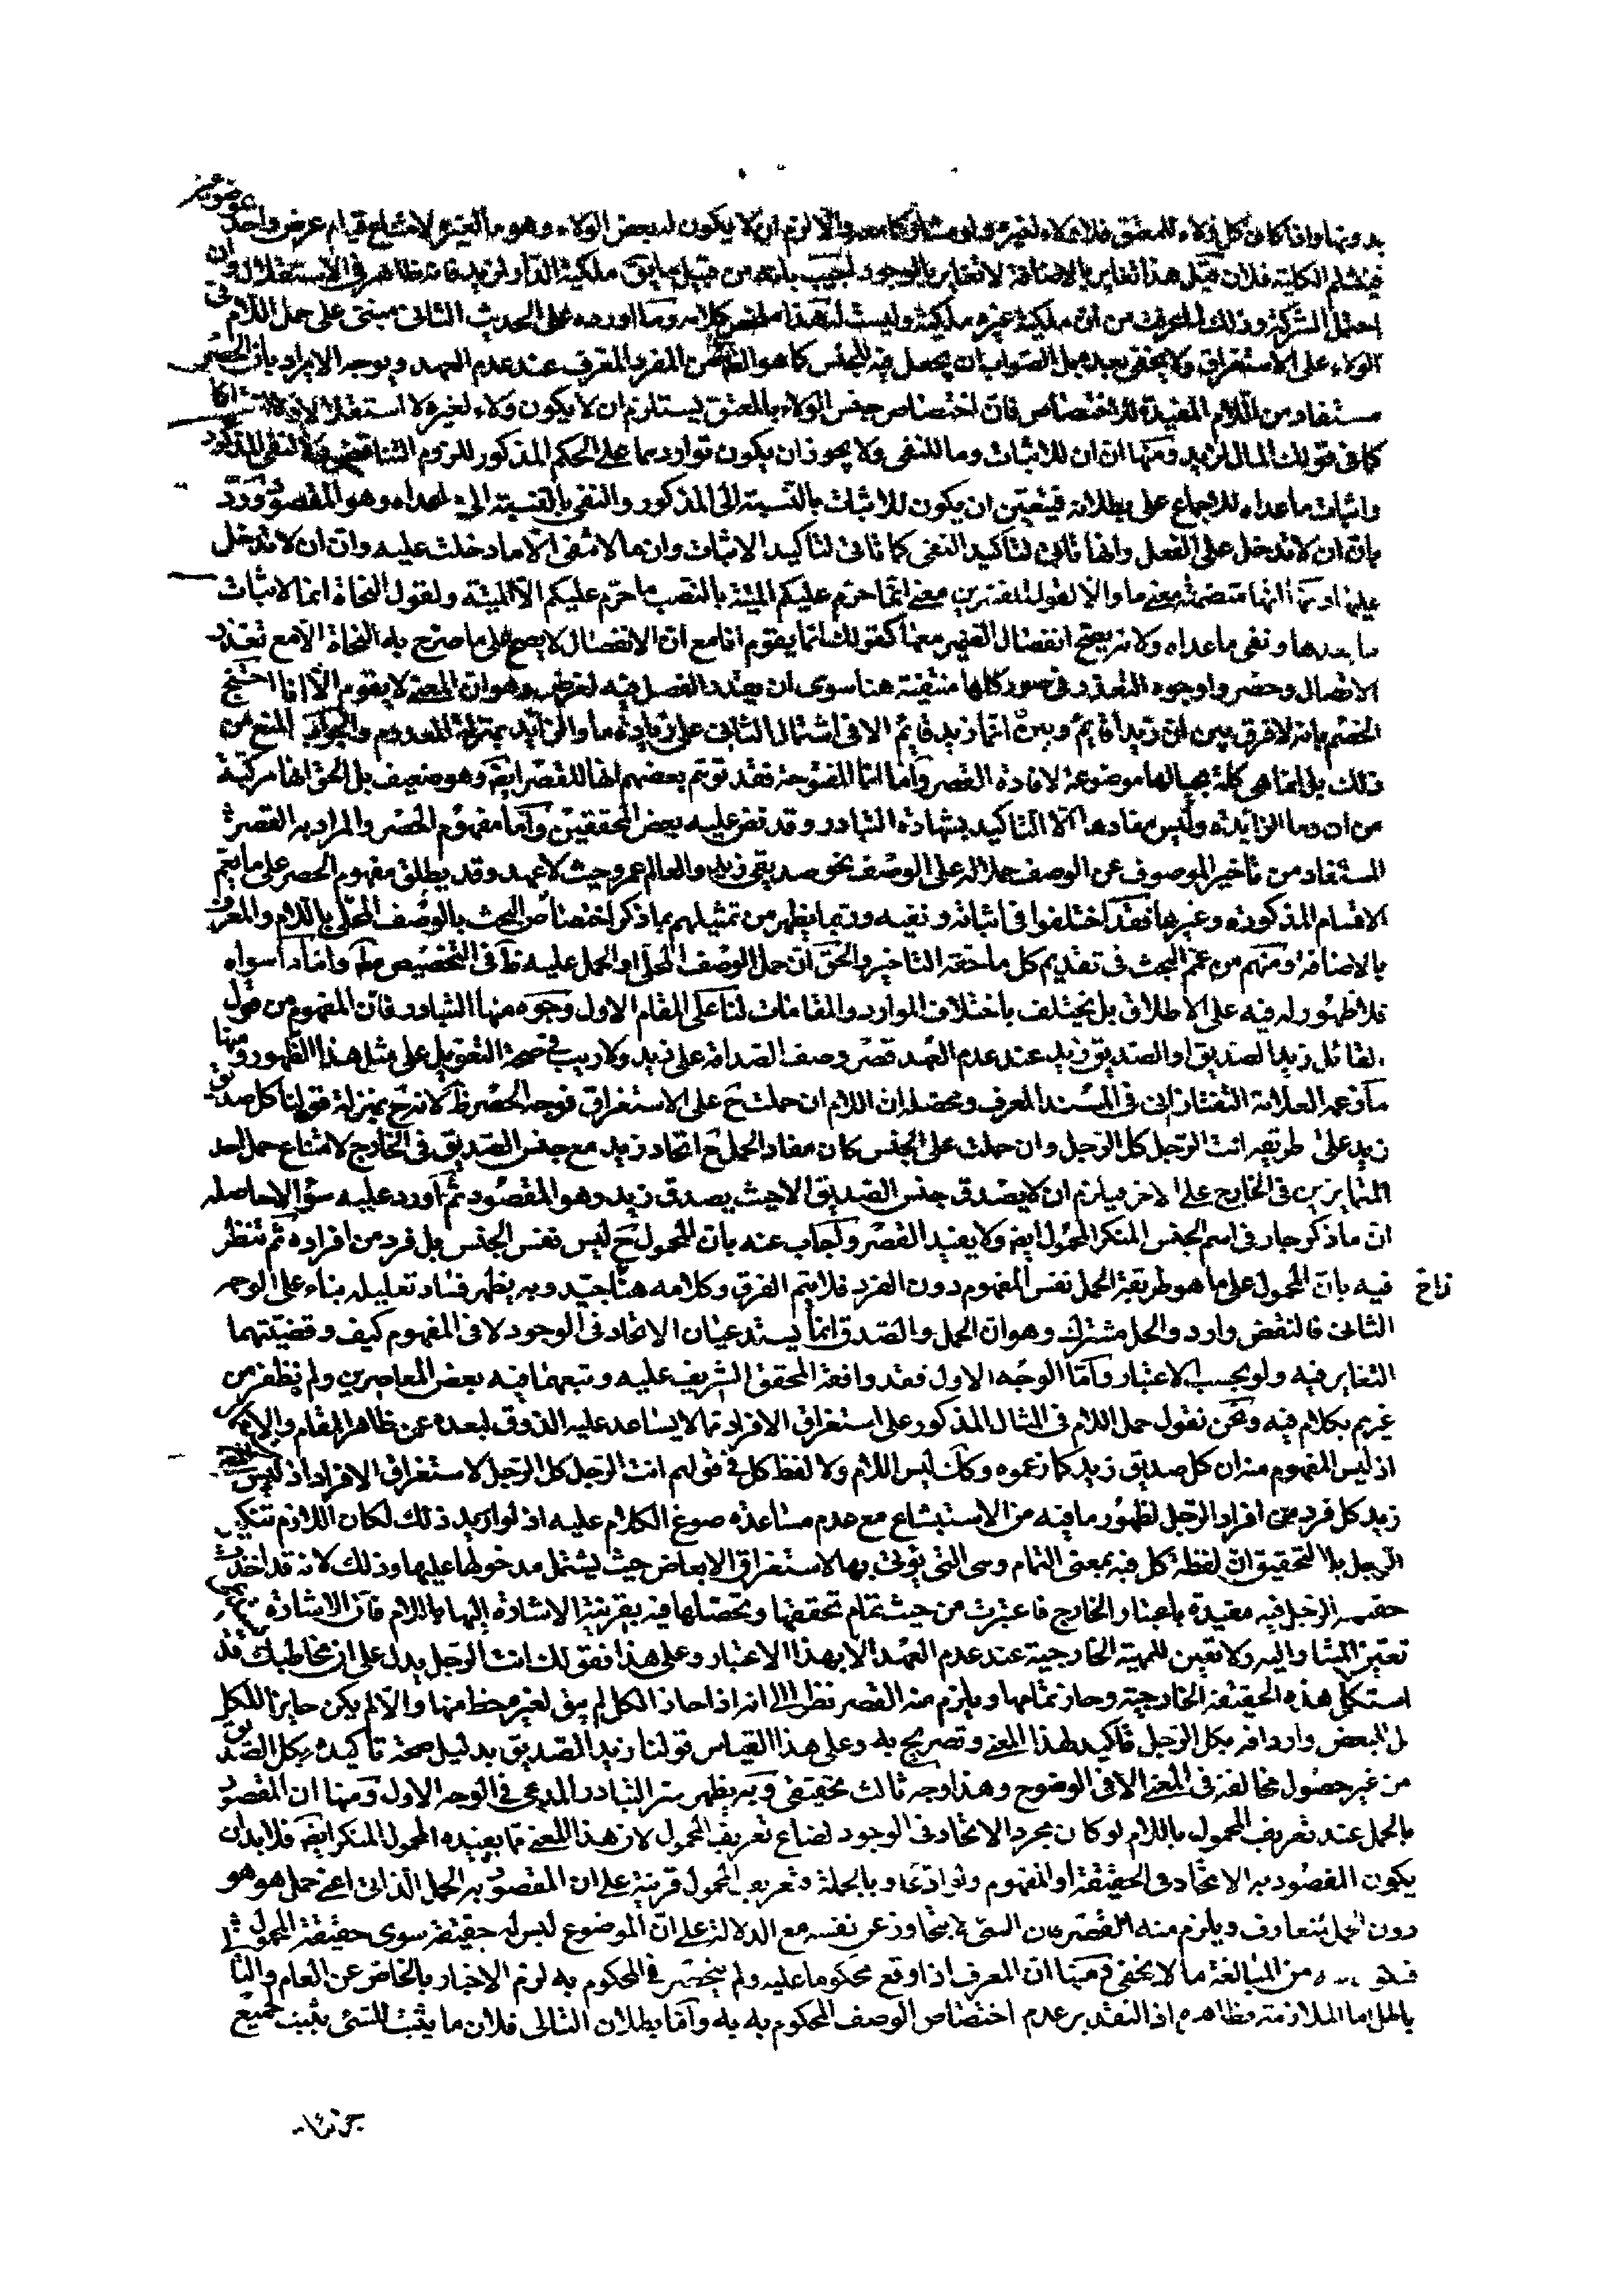 بدونها واذا كان كل ولاء للمعتق فلا ولاء لغيره ولو مشاركا معه والا لزم ان لا يكون له بعض الولاء وهو ما لغيره لامتناع قيام عرض واحد بموضوعين
فينثلم الكلية فلان قيل هذا تغاير بالاضافة لا تغاير بالوجود اجيب بانه من قبيل ما يق ملكية الدار لزيد فانه ظاهر في الاستقلال وان
احتمل الشركة وذلك لما عرفت من ان ملكية غيره ملكية وليست له هذا ملخص كلامه وما اورده على الحديث الثانى مبنى على حمل اللام فى
الولاء على الاستغراق ولا يخفى بعده بل الصواب ان يحمل فيه للجنس كما هو الظ من المفرد المعرف عند عدم العهد ويوجه الايراد بان الحصر
مستفاد من اللام المفيدة للاختصاص فان اختصاص جنس الولاء بالمعتق يستلزم ان لا يكون ولاء لغيره لا استقلالا ولا اشتراكا
كما فى قولك المال لزيد ومنها ان ان للاثبات وما للنفى ولا يجوز ان يكون تواردهما على الحكم المذكور للزوم التناقض ولا النفى للمذكور
واثبات ما عداه للاجماع على بطلانه فيتعين ان يكون للاثبات بالنسبة الى المذكور والنفى بالنسبة الى ما عداه وهو المقصود ورد
بان ان لا تدخل على الفعل وانها تاتى لتاكيد النفى كما تاتى لتاكيد الاثبات وان ما لا تنفى الا ما دخلت عليه وان ان لا تدخل
عليها ومنها انها متضمنة معنى ما والا لقول المفسرين معنى انما حرم عليكم الميتة بالنصب ما حرم عليكم الا الميتة ولقول النحاة انما لاثبات
ما بعدها ونفى ما عداه ولانه يصح انفصال الضمير معها كقولك انما يقوم انا مع ان الانفصال لا يصح على ما صرح به النحاة الا مع تعذر
الاتصال وحصروا وجوه التعذر فى صور كلها منتفية هنا سوى ان يقدر الفصل فيه لغرض وهو ان المعنى لا يقوم الا انا احتج
الخصم بانه لا فرق بين ان زيدا قائم وبين انما زيد قائم الا فى اشتمال الثانى على زيادة ما والزائد بمنزلة المعدوم والجواب المنع من
ذلك بل انما هى كلمة بحيالها موضوعة لافادة القصر واما انما المفتوحة فقد توهم بعضهم انها للقصر ايضا وهو ضعيف بل الحق انها مركبة
من ان وما الزايدة وليس مفادها الا التاكيد بشهادة التبادر وقد نص عليه بعض المحققين واما مفهوم الحصر والمراد به القصر
المستفاد من تاخير الموصوف عن الوصف حملا له على الوصف نحو صديقى زيد والعالم عمرو حيث لا عهد وقد يطلق مفهوم الحصر على ما يعم
الاقسام المذكورة وغيرها فقد اختلفوا فى اثباته ونفيه وربما يظهر من تمثيلهم بما ذكر اختصاص البحث بالوصف المحلى باللام والمعرف
بالاضافة ومنهم من عمم البحث فى تقديم كل ما حقه التاخير والحق ان حمل الوصف المحلى او الحمل عليه ظ فى التخصيص به واما ما سواه
فلا ظهور له فيه على الاطلاق بل يختلف باختلاف الموارد والمقامات لنا على المقام الاول وجوه منها التبادر فان المفهوم من قول
القائل زيد الصديق او الصديق زيد عند عدم العهد قصر وصف الصداقة على زيد ولا ريب فى صحة التعويل على مثل هذا الظهور ومنها
ما زعمه العلامة التفتازانى فى المسند المعرف ومحصله ان اللام ان حملت ح على الاستغراق فوجه الحصر ظ لانه ح بمنزلة قولنا كل صديق
زيد على طريقه انت الرجل كل الرجل وان حملت على الجنس كان مفاد الحمل ح اتحاد زيد مع جنس الصديق فى الخارج لامتناع حمل احد
المتمايزين فى الخارج على الاخر فيلزم ان لا يصدق جنس الصديق الا حيث يصدق زيد وهو المقصود ثم اورد عليه سؤالا حاصله
ان ما ذكر جار فى اسم الجنس المنكر المحمول ايضا ولا يفيد القصر واجاب عنه بان المحمول ح ليس نفس الجنس بل فرد من افراده ثم تنظر
فيه بان المحمول على ما هو طريقة الحمل نفس المفهوم دون الفرد فلا يتم الفرق وكلامه هنا جيد وبه يظهر فساد تعليله بناء على الوجه
الثانى فالنقض وارد والحل مشترك وهو ان الحمل والصدق انما يستدعيان الاتحاد فى الوجود لا فى المفهوم كيف وقضيتهما
التغاير فيه ولو بحسب الاعتبار واما الوجه الاول فقد وافقه المحقق الشريف عليه وتبعهما فيه بعض المعاصرين ولم نظفر من
غيرهم بكلام فيه ونحن نقول حمل اللام فى المثال المذكور على استغراق الافراد مما لا يساعد عليه الذوق لبعده عن ظاهر المقام
اذ ليس المفهوم منه ان كل صديق زيد كما زعموه وكك ليس اللام ولا لفظ كل فى قولهم انت الرجل كل الرجل لاستغراق الافراد اذ ليس
زيد كل فرد من افراد الرجل لظهور ما فيه من الاستبشاع مع عدم مساعدة صوغ الكلام عليه اذ لو اريد ذلك لكان اللازم تنكير
الرجل بل التحقيق ان لفظة كل فيه بمعنى التمام وهى التى يؤتى بها لاستغراق الابعاض حيث يشتمل مدخولها عليها وذلك لانه قد اخذت
حقيقة الرجل فيه مقيدة باعتبار الخارج فاعتبرت من حيث تمام تحققها وتحصلها فيه بقرينة الاشارة اليها باللام فان الاشارة تستدعى
تعين المشار اليه ولا تعين للمهية الخارجية عند عدم العهد الا بهذا الاعتبار وعلى هذا فقولك انت الرجل يدل على ان مخاطبك قد
استكمل هذه الحقيقة الخارجية وحاز تمامها ويلزم منه القصر نظرا الى انه اذا حاز الكل لم يبق لغيره حظ منها والا لم يكن حايزا للكل
بل البعض واردافه بكل الرجل تاكيد لهذا المعنى وتصريح به وعلى هذا القياس قولنا زيد الصديق بدليل صحة تاكيده بكل الصديق
من غير حصول مخالفة فى المعنى الا فى الوضوح وهذا وجه ثالث تحقيقى وبه يظهر سر التبادر المدعى فى الوجه الاول ومنها ان المقصود
بالحمل عند تعريف المحمول باللام لو كان مجرد الاتحاد فى الوجود لضاع تعريف المحمول لان هذا المعنى مما يفيده المحمول المنكر ايضا فلا بد ان
يكون المقصود به الاتحاد فى الحقيقة او المفهوم ولو ادعاء وبالجملة فتعريف المحمول قرينة على ان المقصود به الحمل الذاتى اعنى حمل هو هو
دون الحمل المتعارف ويلزم منه القصر فان الشىء لا يتجاوز عن نفسه مع الدلالة على ان الموضوع ليس له حقيقة سوى حقيقة المحمول
من المبالغة ما لا يخفى ومنها ان المعرف اذا وقع محكوما عليه ولم ينحصر فى المحكوم به لزم الاخبار بالخاص عن العام والتالى
باطل اما الملازمة فظاهرة اذ التقدير عدم اختصاص الوصف المحكوم به به واما بطلان التالى فلان ما يثبت للشىء يثبت لجميع